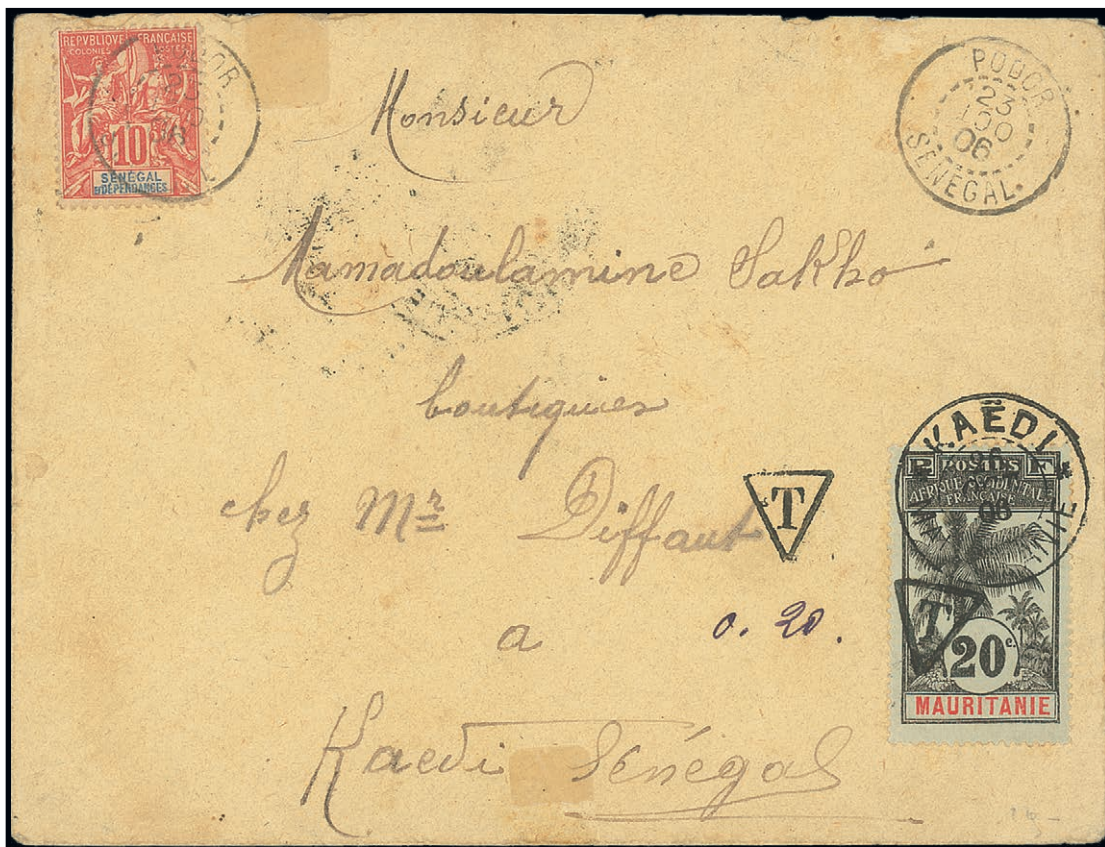 REPVBLIQVE FRANÇAISE
COLONIES POSTES
10
SÉNÉGAL
ET DÉPENDANCES
PODOR
23
06
SÉNÉGAL
Monsieur
Mamadoulamine Sakho
boutiquier
chez Mr Diffaut
T
a
0.20.
Kaedi Sénégal
KAËDI
06
R POSTES F
AFRIQUE OCCIDENTALE
FRANÇAISE
T
20 c.
MAURITANIE